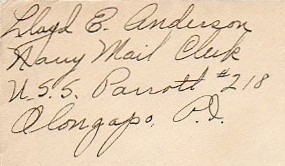 Lloyd E. Anderson
Navy Mail Clerk
U.S.S. Parrott #218
Olongapo, P.I.